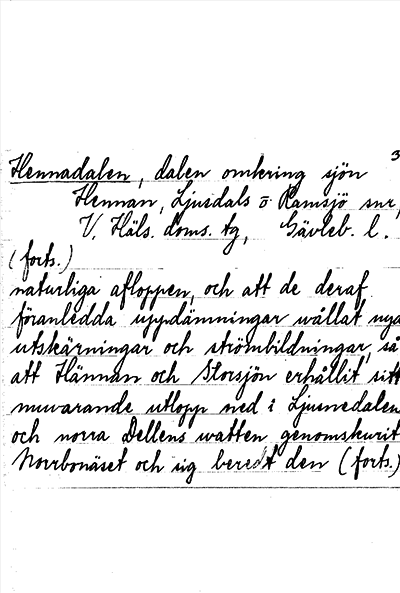 3
Hennadalen, dalen omkring sjön
Hennan, Ljusdals o. Ramsjö snr,
V. Häls. doms. tg, Gävleb. l.
(forts.)
naturliga afloppen, och att de deraf
föranledda uppdämningar wållat nya
utskärningar och strömbildningar, så
att Hännan och Storsjön erhållit sitt
nuvarande utlopp ned i Ljusnedalen
och norra Dellens watten genomskurit
Norrbonäset och sig beredt den (forts.)